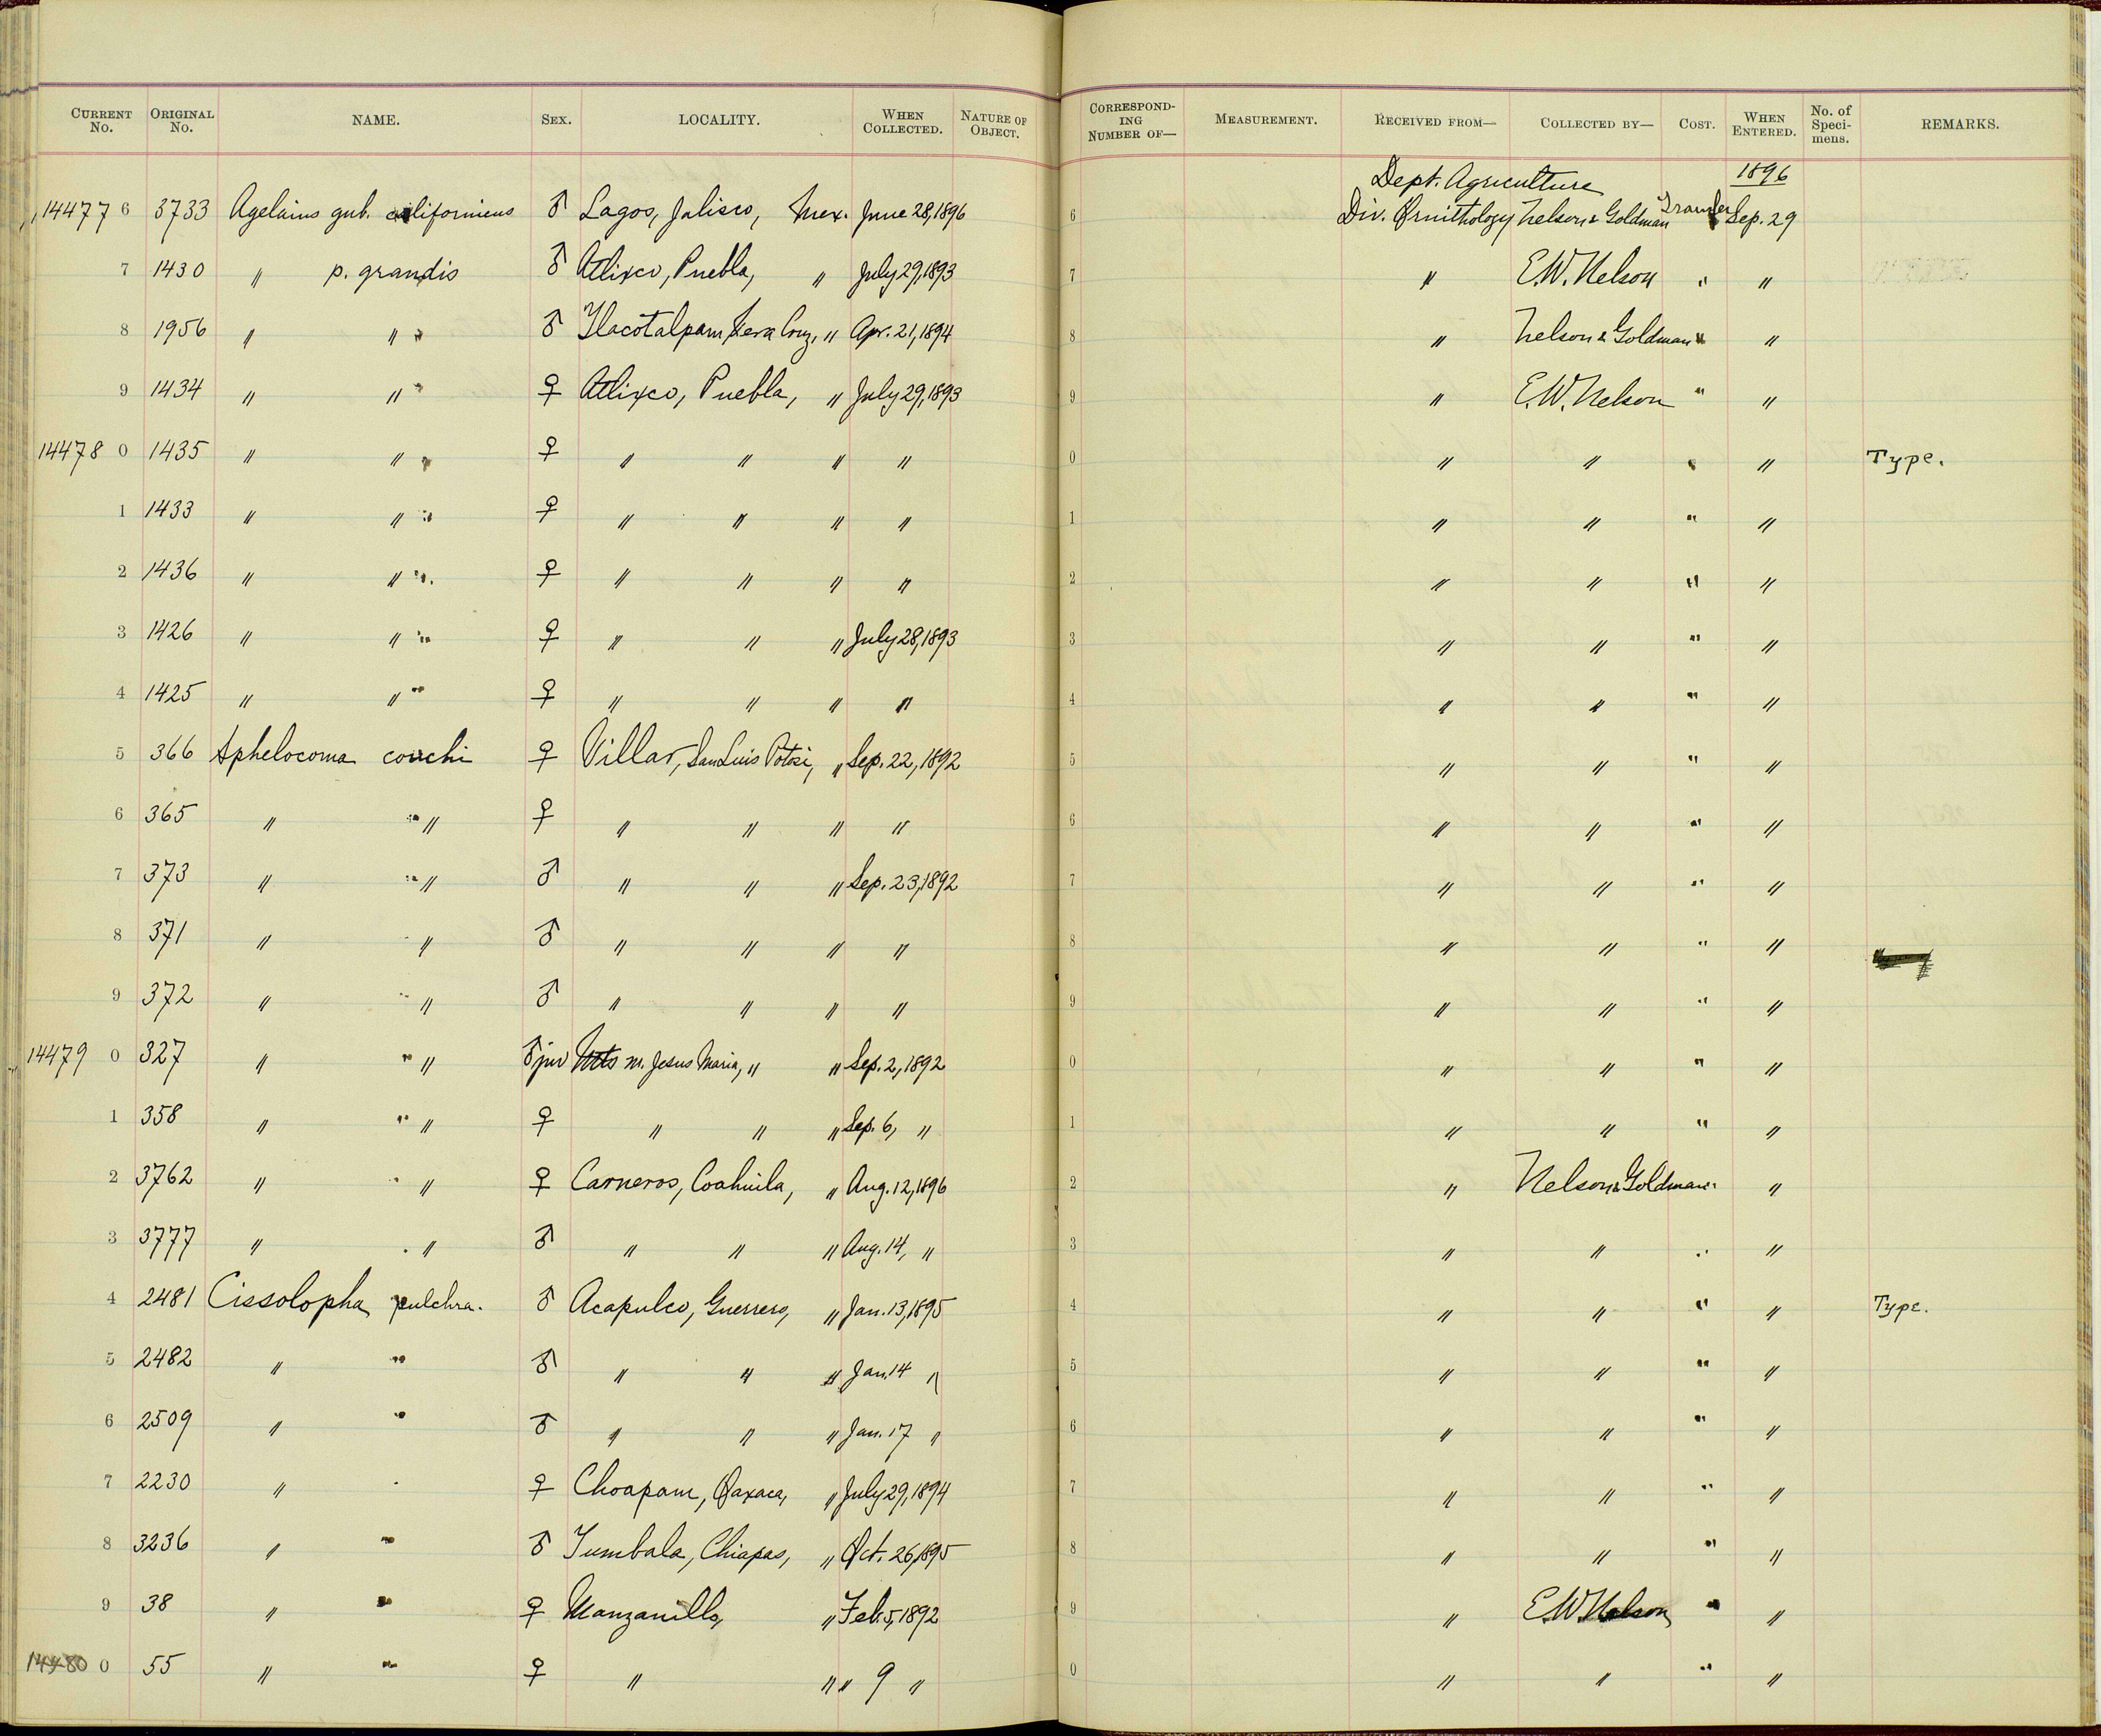 CURRENT No. ORIGINAL No. NAME. SEX. LOCALITY. WHEN COLLECTED. NATURE OF OBJECT. CORRESPONDING NUMBER OF— MEASUREMENT. RECEIVED FROM— COLLECTED BY— COST. WHEN ENTERED. No. of Specimens. REMARKS.
Dept. Agriculture 1896
14477 6 3733 Agelaius gub. californicus ♂ Lagos, Jalisco, Mex. June 28, 1896 6 Div. Ornithology Nelson & Goldman Transfer Sep. 29
7 1430 " p. grandis ♂ Atlixco, Puebla, " July 29, 1893 7 " E.W. Nelson " "
8 1956 " " " ♂ Tlacotalpam, Vera Cruz, " Apr. 21, 1894 8 " Nelson & Goldman " "
9 1434 " " " ♀ Atlixco, Puebla, " July 29, 1893 9 " E.W. Nelson " "
14478 0 1435 " " " ♀ " " " " 0 " " " " Type.
1 1433 " " " ♀ " " " " 1 " " " "
2 1436 " " " ♀ " " " " 2 " " " "
3 1426 " " " ♀ " " " July 28, 1893 3 " " " "
4 1425 " " " ♀ " " " " 4 " " " "
5 366 Aphelocoma couchi ♀ Villar, San Luis Potosi, " Sep. 22, 1892 5 " " " "
6 365 " " " ♀ " " " " 6 " " " "
7 373 " " " ♂ " " " Sep. 23, 1892 7 " " " "
8 371 " " ♂ " " " " 8 " " " "
9 372 " " " ♂ " " " " 9 " " " "
14479 0 327 " " " ♂ juv Mts nr. Jesus Maria, " " Sep. 2, 1892 0 " " " "
1 358 " " " ♀ " " " Sep. 6, " 1 " " " "
2 3762 " " " ♀ Carneros, Coahuila, " Aug. 12, 1896 2 " Nelson & Goldman " "
3 3777 " " ♂ " " " Aug. 14, " 3 " " " "
4 2481 Cissolopha pulchra. ♂ Acapulco, Guerrero, " Jan. 13, 1895 4 " " " " Type.
5 2482 " " ♂ " " " Jan. 14 " 5 " " " "
6 2509 " " ♂ " " " Jan. 17 " 6 " " " "
7 2230 " " ♀ Choapam, Oaxaca, " July 29, 1894 7 " " " "
8 3236 " " ♂ Tumbala, Chiapas, " Oct. 26, 1895 8 " " " "
9 38 " " ♀ Manzanillo, " Feb. 5, 1892 9 " E.W. Nelson " "
14480 0 55 " " ♀ " " " 9 " 0 " " " "